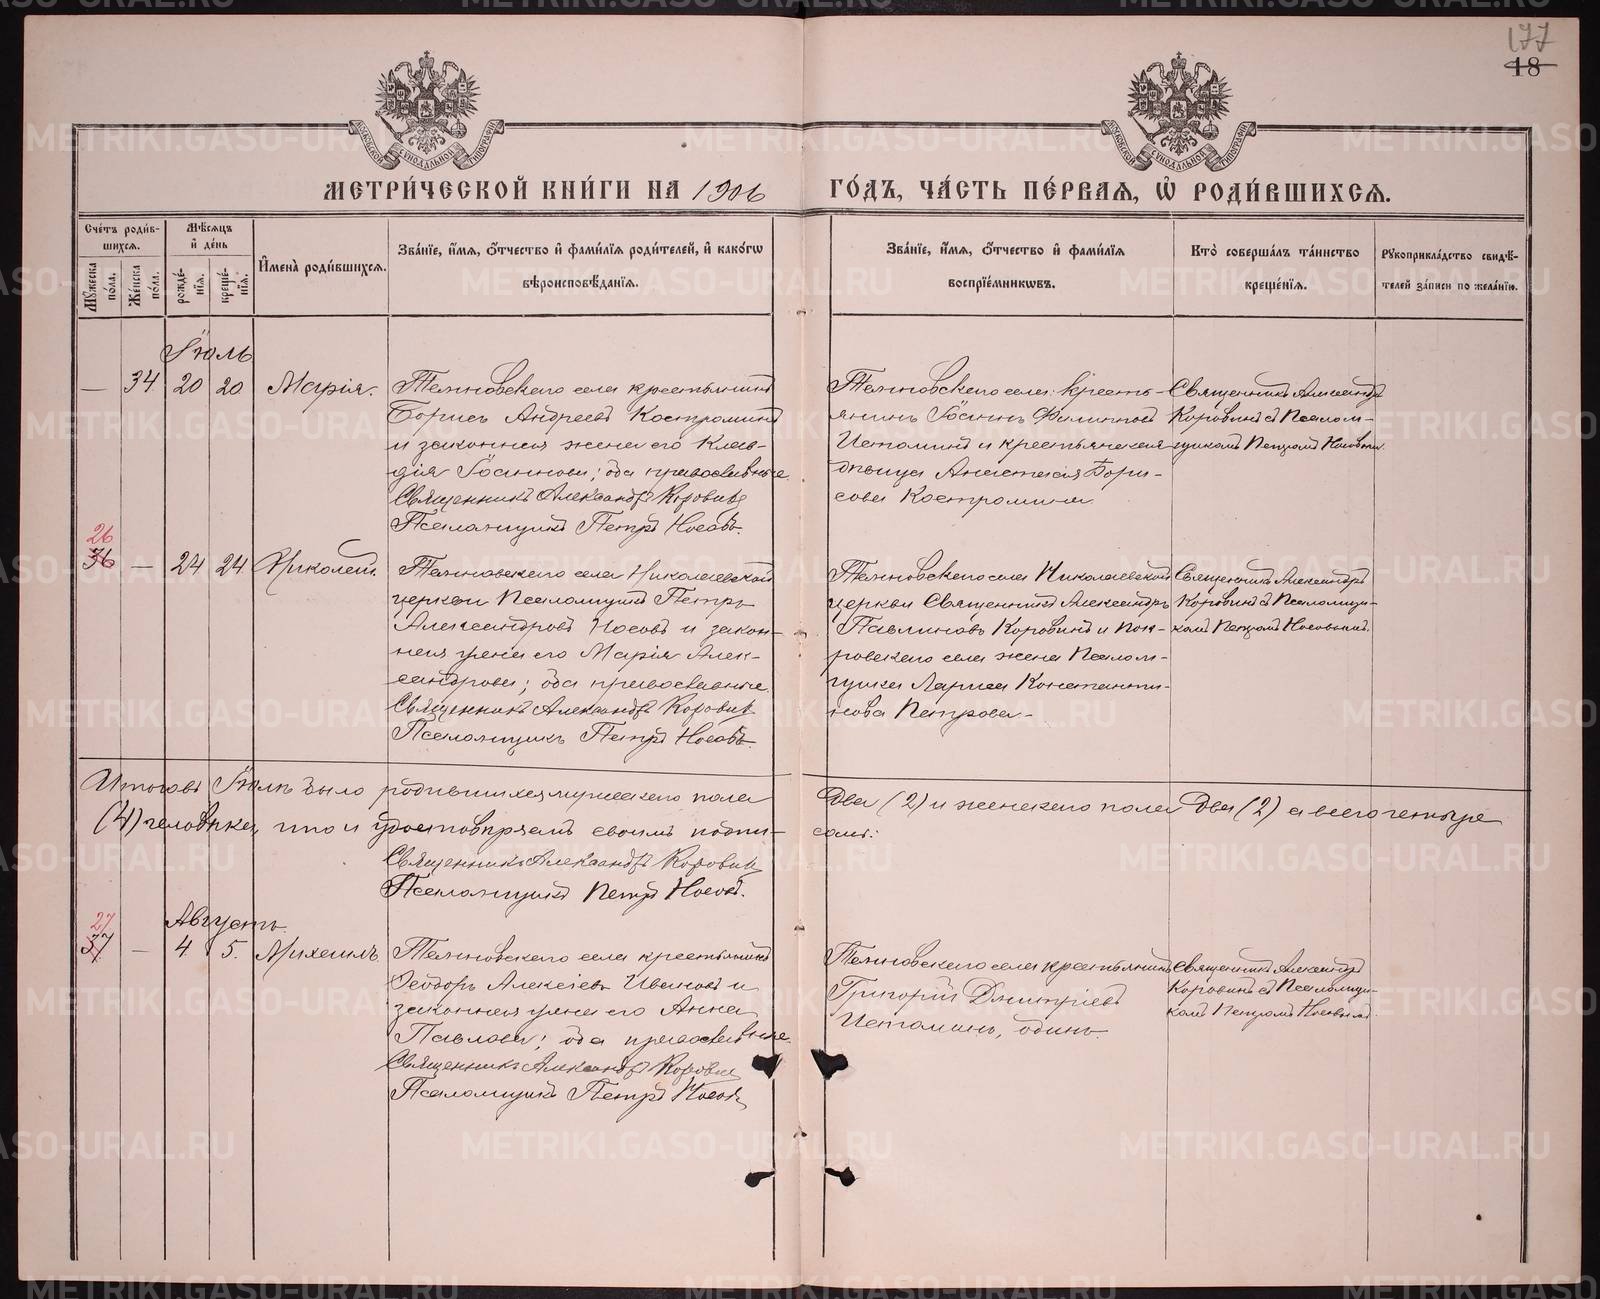 177
18
МЕТРИ́ЧЕСКОЙ КНИ́ГИ НА 1906 ГО́ДЪ, ЧА́СТЬ ПЕ́РВАЯ, Ѽ РОДИ́ВШИХСЯ.
Сче́тъ роди́вшихся.
Мꙋ́жеска по́ла.
Же́нска по́ла.
Мѣ́сяцъ и҆ де́нь
рожде́нїя.
креще́нїя.
И҆мена̀ роди́вшихся.
Зва́нїе, и҆́мя, ѻ҆́тчество и҆ фами́лїя роди́телей, и҆ како́гѡ
вѣроисповѣ́данїя.
Зва́нїе, и҆́мя, ѻ҆́тчество и҆ фами́лїя
воспрїе́мникѡвъ.
Кто̀ соверша́лъ та́инство
креще́нїя.
Рꙋкоприкла́дство свидѣ́-
телей за́писи по жела́нїю.
Іюль
— 34 20 20 Марія.
села крестьянинъ
Борисъ Андреевъ Костроминъ
и законная жена его Клав-
дія Іоаннова; оба православные.
Священникъ Александръ Коровинъ
Псаломщикъ Петръ Носовъ.
села крестья-
нинъ Іоаннъ Филипповъ
Истоминъ и крестьянская
дѣвица Анастасія Бори-
сова Костромина
Священникъ Александръ
Коровинъ съ Псалом-
щикомъ Петромъ Носовымъ.
26
36 — 24 24 Николай.
села Николаевской
церкви Псаломщикъ Петръ
Александровъ Носовъ и закон-
ная жена его Марія Алек-
сандрова; оба православные.
Священникъ Александръ Коровинъ
Псаломщикъ Петръ Носовъ.
села Николаевской
церкви Священникъ Александръ
Павлиновъ Коровинъ и Пок-
ровскаго села жена Псалом-
щика Лариса Константи-
нова Петрова.
Священникъ Александръ
Коровинъ съ Псаломщи-
комъ Петромъ Носовымъ.
Итого въ Іюлѣ было родившихся мужескаго пола Два (2) и женскаго пола Два (2) а всего четыре
(4) человѣка, что и удостовѣряемъ своимъ подпи-
сомъ:
Священникъ Александръ Коровинъ
Псаломщикъ Петръ Носовъ.
Августъ.
27
37 — 4 5. Михаилъ
села крестьянинъ
Ѳеодоръ Алексіевъ Ивановъ и
законная жена его Анна
Павлова; оба православные.
Священникъ Александръ Коровинъ
Псаломщикъ Петръ Носовъ
села крестьянинъ
Григорій Дмитріевъ
Истоминъ, одинъ.
Священникъ Александръ
Коровинъ съ Псаломщи-
комъ Петромъ Носовымъ.
METRIKI.GASO-URAL.RU